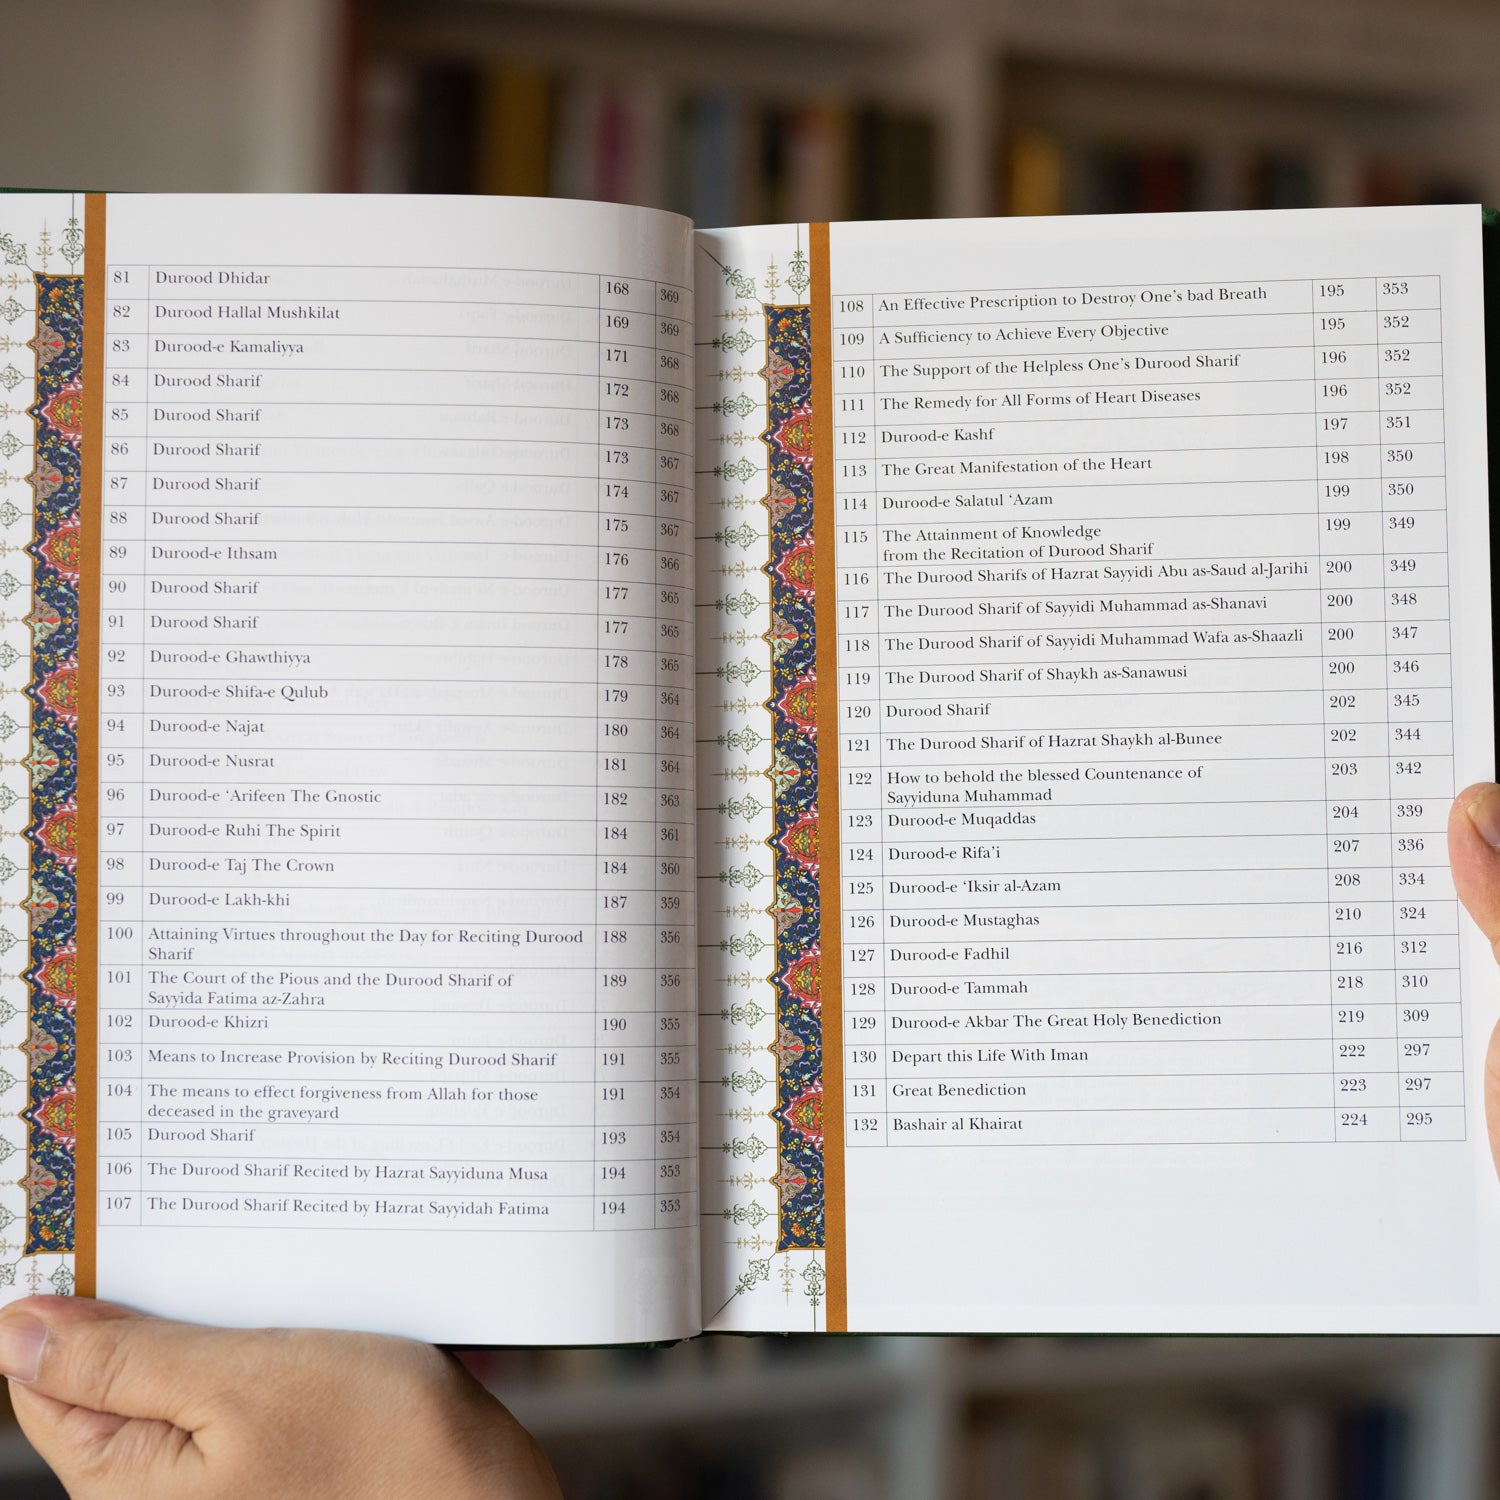 81 Durood Dhidar 168 369
82 Durood Hallal Mushkilat 169 369
83 Durood-e Kamaliyya 171 368
84 Durood Sharif 172 368
85 Durood Sharif 173 368
86 Durood Sharif 173 367
87 Durood Sharif 174 367
88 Durood Sharif 175 367
89 Durood-e Ithsam 176 366
90 Durood Sharif 177 365
91 Durood Sharif 177 365
92 Durood-e Ghawthiyya 178 365
93 Durood-e Shifa-e Qulub 179 364
94 Durood-e Najat 180 364
95 Durood-e Nusrat 181 364
96 Durood-e ‘Arifeen The Gnostic 182 363
97 Durood-e Ruhi The Spirit 184 361
98 Durood-e Taj The Crown 184 360
99 Durood-e Lakh-khi 187 359
100 Attaining Virtues throughout the Day for Reciting Durood 188 356
Sharif
101 The Court of the Pious and the Durood Sharif of 189 356
Sayyida Fatima az-Zahra
102 Durood-e Khizri 190 355
103 Means to Increase Provision by Reciting Durood Sharif 191 355
104 The means to effect forgiveness from Allah for those 191 354
deceased in the graveyard
105 Durood Sharif 193 354
106 The Durood Sharif Recited by Hazrat Sayyiduna Musa 194 353
107 The Durood Sharif Recited by Hazrat Sayyidah Fatima 194 353
108 An Effective Prescription to Destroy One’s bad Breath 195 353
109 A Sufficiency to Achieve Every Objective 195 352
110 The Support of the Helpless One’s Durood Sharif 196 352
111 The Remedy for All Forms of Heart Diseases 196 352
112 Durood-e Kashf 197 351
113 The Great Manifestation of the Heart 198 350
114 Durood-e Salatul ‘Azam 199 350
115 The Attainment of Knowledge 199 349
from the Recitation of Durood Sharif
116 The Durood Sharifs of Hazrat Sayyidi Abu as-Saud al-Jarihi 200 349
117 The Durood Sharif of Sayyidi Muhammad as-Shanavi 200 348
118 The Durood Sharif of Sayyidi Muhammad Wafa as-Shaazli 200 347
119 The Durood Sharif of Shaykh as-Sanawusi 200 346
120 Durood Sharif 202 345
121 The Durood Sharif of Hazrat Shaykh al-Bunee 202 344
122 How to behold the blessed Countenance of 203 342
Sayyiduna Muhammad
123 Durood-e Muqaddas 204 339
124 Durood-e Rifa’i 207 336
125 Durood-e ‘Iksir al-Azam 208 334
126 Durood-e Mustaghas 210 324
127 Durood-e Fadhil 216 312
128 Durood-e Tammah 218 310
129 Durood-e Akbar The Great Holy Benediction 219 309
130 Depart this Life With Iman 222 297
131 Great Benediction 223 297
132 Bashair al Khairat 224 295